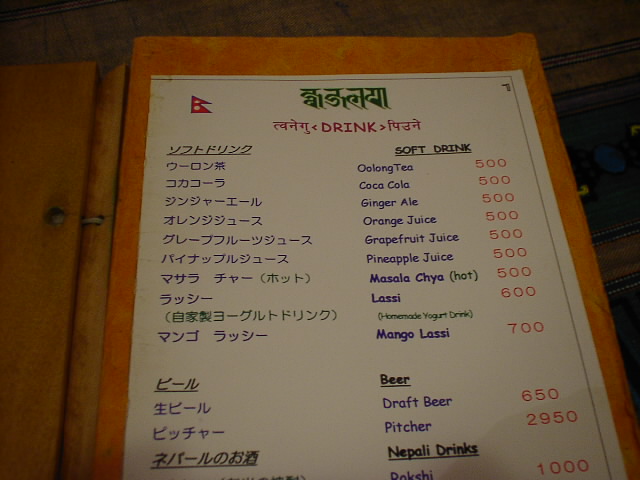 त्वनेगु<DRINK>पिउने
ソフトドリンク SOFT DRINK
ウーロン茶 OolongTea 500
コカコーラ Coca Cola 500
ジンジャーエール Ginger Ale 500
オレンジジュース Orange Juice 500
グレープフルーツジュース Grapefruit Juice 500
パイナップルジュース Pineapple Juice 500
マサラ チャー(ホット) Masala Chya (hot) 500
ラッシー Lassi 600
(自家製ヨーグルトドリンク) (Homemade Yogurt Drink)
マンゴ ラッシー Mango Lassi 700
ビール Beer
生ビール Draft Beer 650
ピッチャー Pitcher 2950
ネパールのお酒 Nepali Drinks
Rokshi 1000